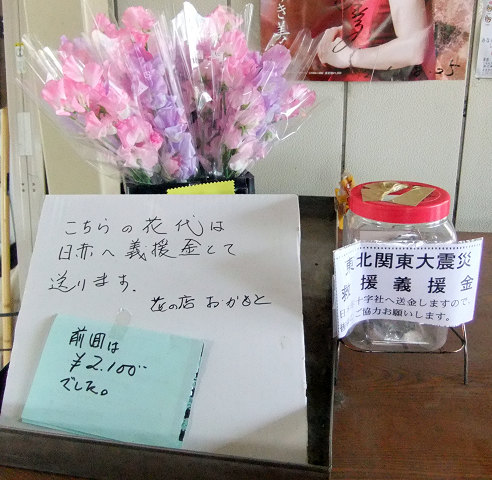 こちらの花代は
日赤へ義援金として
送ります.
花の店 おかもと
前回は
¥2.100
でした。
東北関東大震災
救援義援金
日赤十字社へ送金しますので、
ご協力お願いします。
8.25